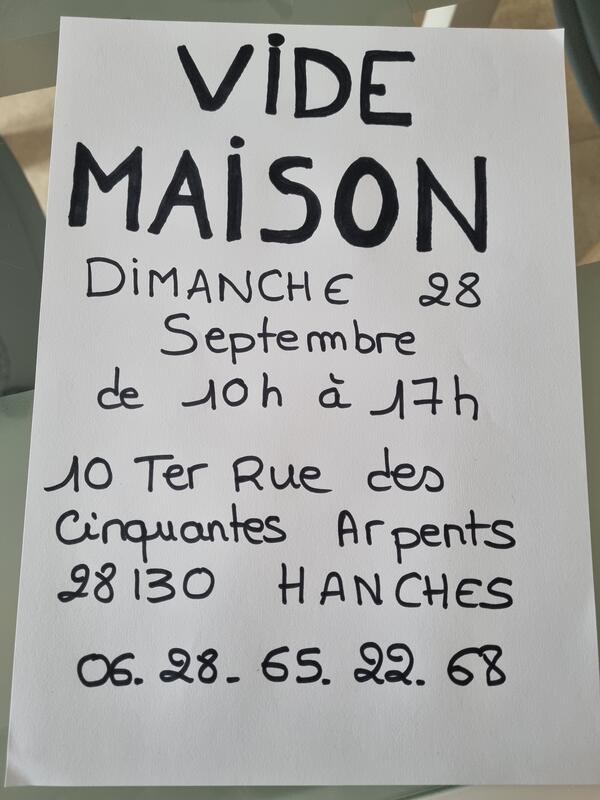 VIDE
MAISON
DIMANCHE 28
Septembre
de 10h à 17h
10 Ter Rue des
Cinquantes Arpents
28130 HANCHES
06. 28- 65. 22. 68